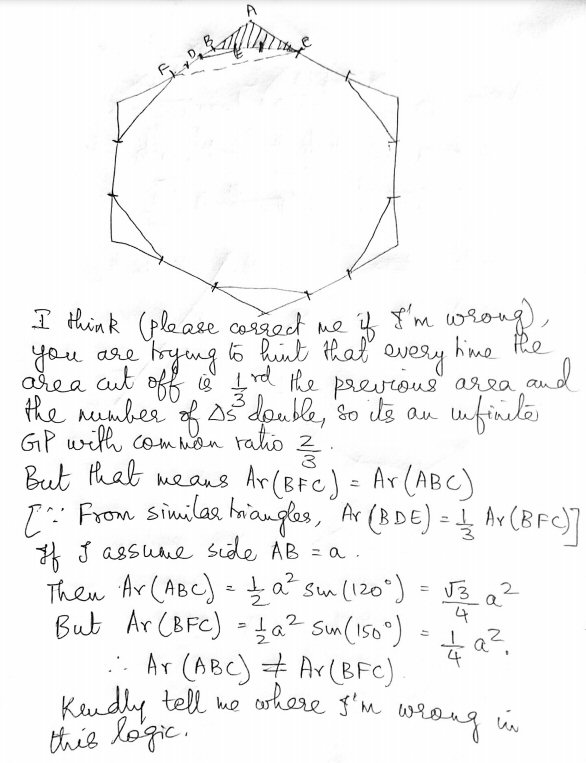 A
B
C
D
E
F
I think (please correct me if I'm wrong),
you are trying to hint that every time the
area cut off is 1/3 rd the previous area and
the number of Δs double, so its an infinite
GP with common ratio 2/3.
But that means Ar(BFC) = Ar(ABC)
[∵ From similar triangles, Ar(BDE) = 1/3 Ar(BFC)]
If I assume side AB = a.
Then Ar(ABC) = 1/2 a² sin(120°) = √3/4 a²
But Ar(BFC) = 1/2 a² sin(150°) = 1/4 a².
∴ Ar(ABC) ≠ Ar(BFC)
Kindly tell me where I'm wrong in
this logic.